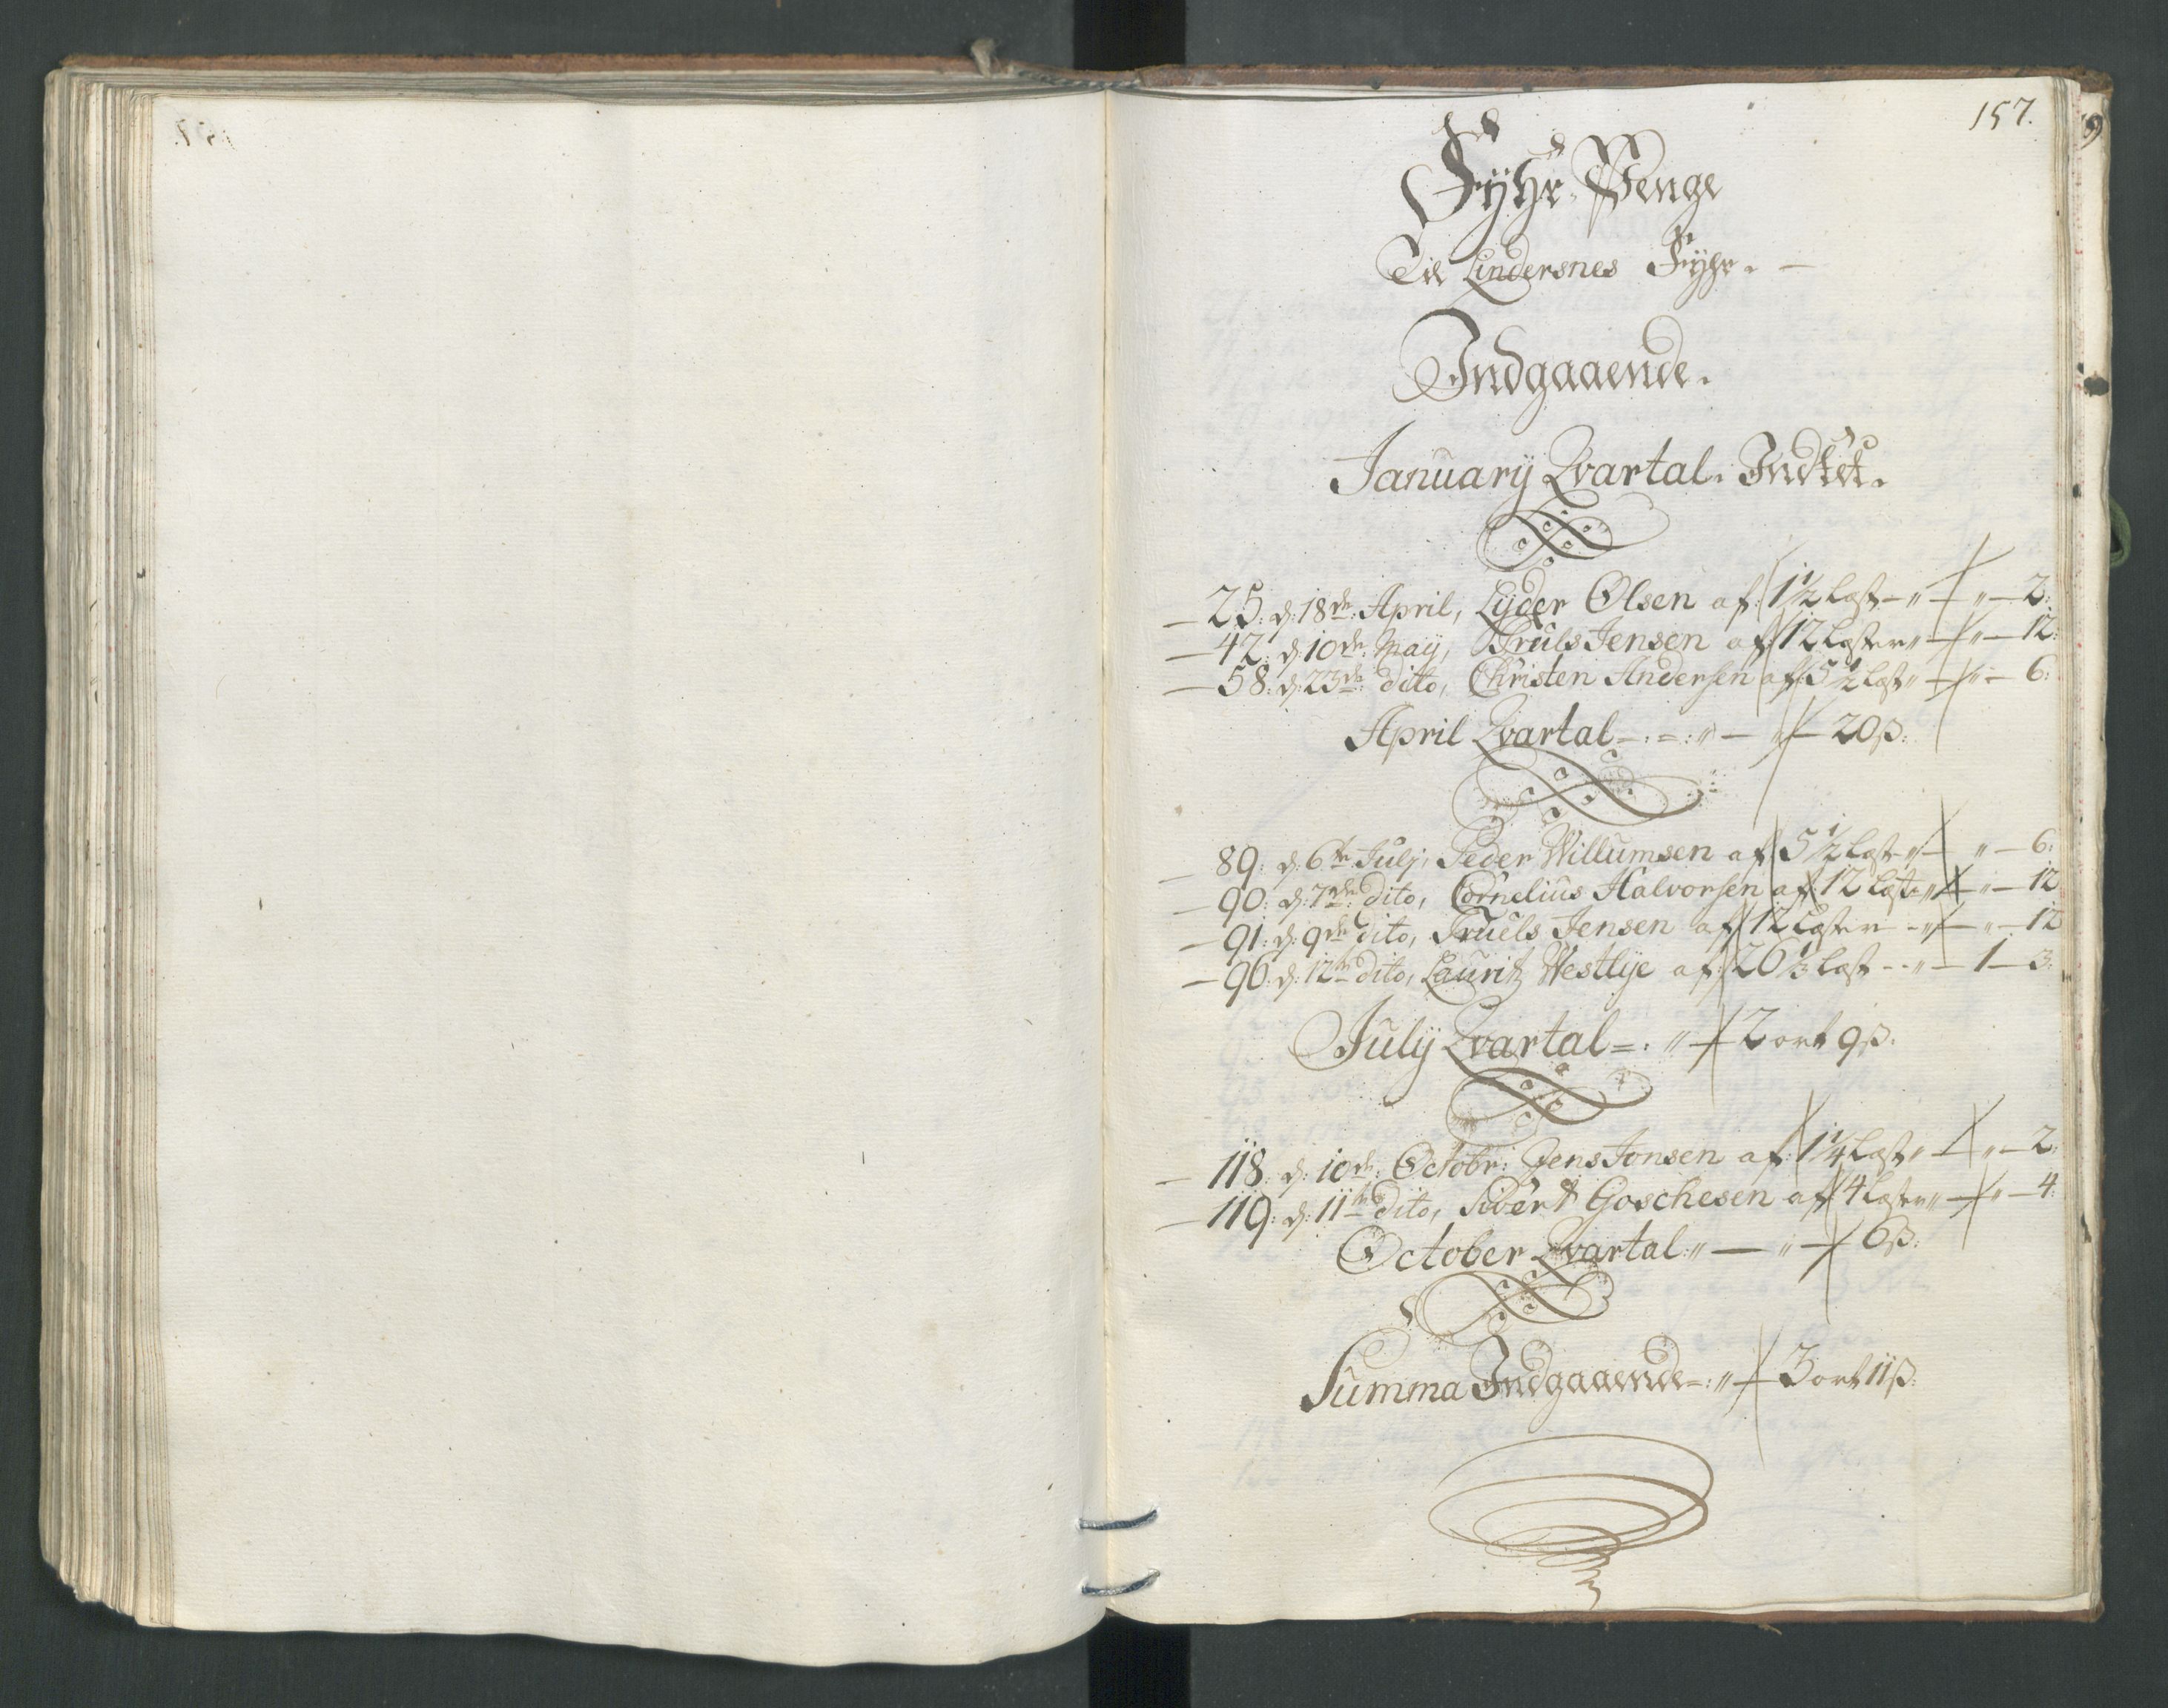 157.
Fÿhr Penge
Til Lindersnes Fÿhr. —
Indgaaende.
Januarij Qvartal. Indtet.
— 25: d: 18de: April, Lÿder Olsen af 1½ læst — " — " — 2:
— 42: d: 10de: Maÿ, Truls Jensen af 12 læster " — " — 12:
— 58: d: 23de: dito, Christen Andersen af 5½ læst " — " — 6:
April Qvartal — : = : " — " — 20 ß:
— 89: d: 6te Julj, Peder Willumsen af 5½ læst " — " — 6:
— 90: d: 7de: dito, Cornelius Halvorsen af 12 læst " — " — 12
— 91: d: 9de dito, Truels Jensen af 12 læster - " — " — 12
— 96: d: 12te dito, Lauritz Westlÿe af 26⅓ læst - - " — 1 — 3:
Julÿ Qvartal = : " — 2 ort 9 ß:
— 118: d: 10de: Octobr: Jens Jonsen af 1¼ læst " — " — 2:
— 119: d: 11te dito, Sivert Goschesen af 4 læster " — " — 4:
October Qvartal: " — " — 6 ß:
Summa Indgaaende = : " — 3 ort 11 ß: